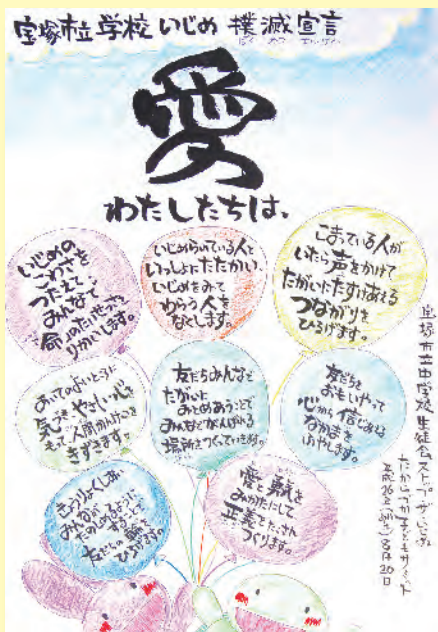 宝塚市立学校いじめ撲滅宣言
ぼくめつ せんげん
愛
わたしたちは、
いじめの
こわさを
つたえて、
みんなで
命のたいせつさを
りかいします。
いじめられている人と
いっしょにたたかい、
いじめをみて
わらう人を
なくします。
こまっている人が
いたら声をかけて
たがいにたすけあえる
つながりを
ひろげます。
あいてのよいところに
気づき やさしい心を
もって、人間かんけいを
きずきます。
友だちみんなと
たがいに
みとめあうことで
みんながんばれる
場所をつくっていきます。
友だちを
おもいやって
心から信じあえる
なかまを
ふやします。
きょうりょくしあい
みんなが
たのしめるように
友だちの輪を
ひろげます。
愛と勇気を
みかたにして
正義をたくさん
つくります。
宝塚市立中学校生徒会ストップ・ザ・いじめ
たからづか子どもサミット
平成26年8月20日